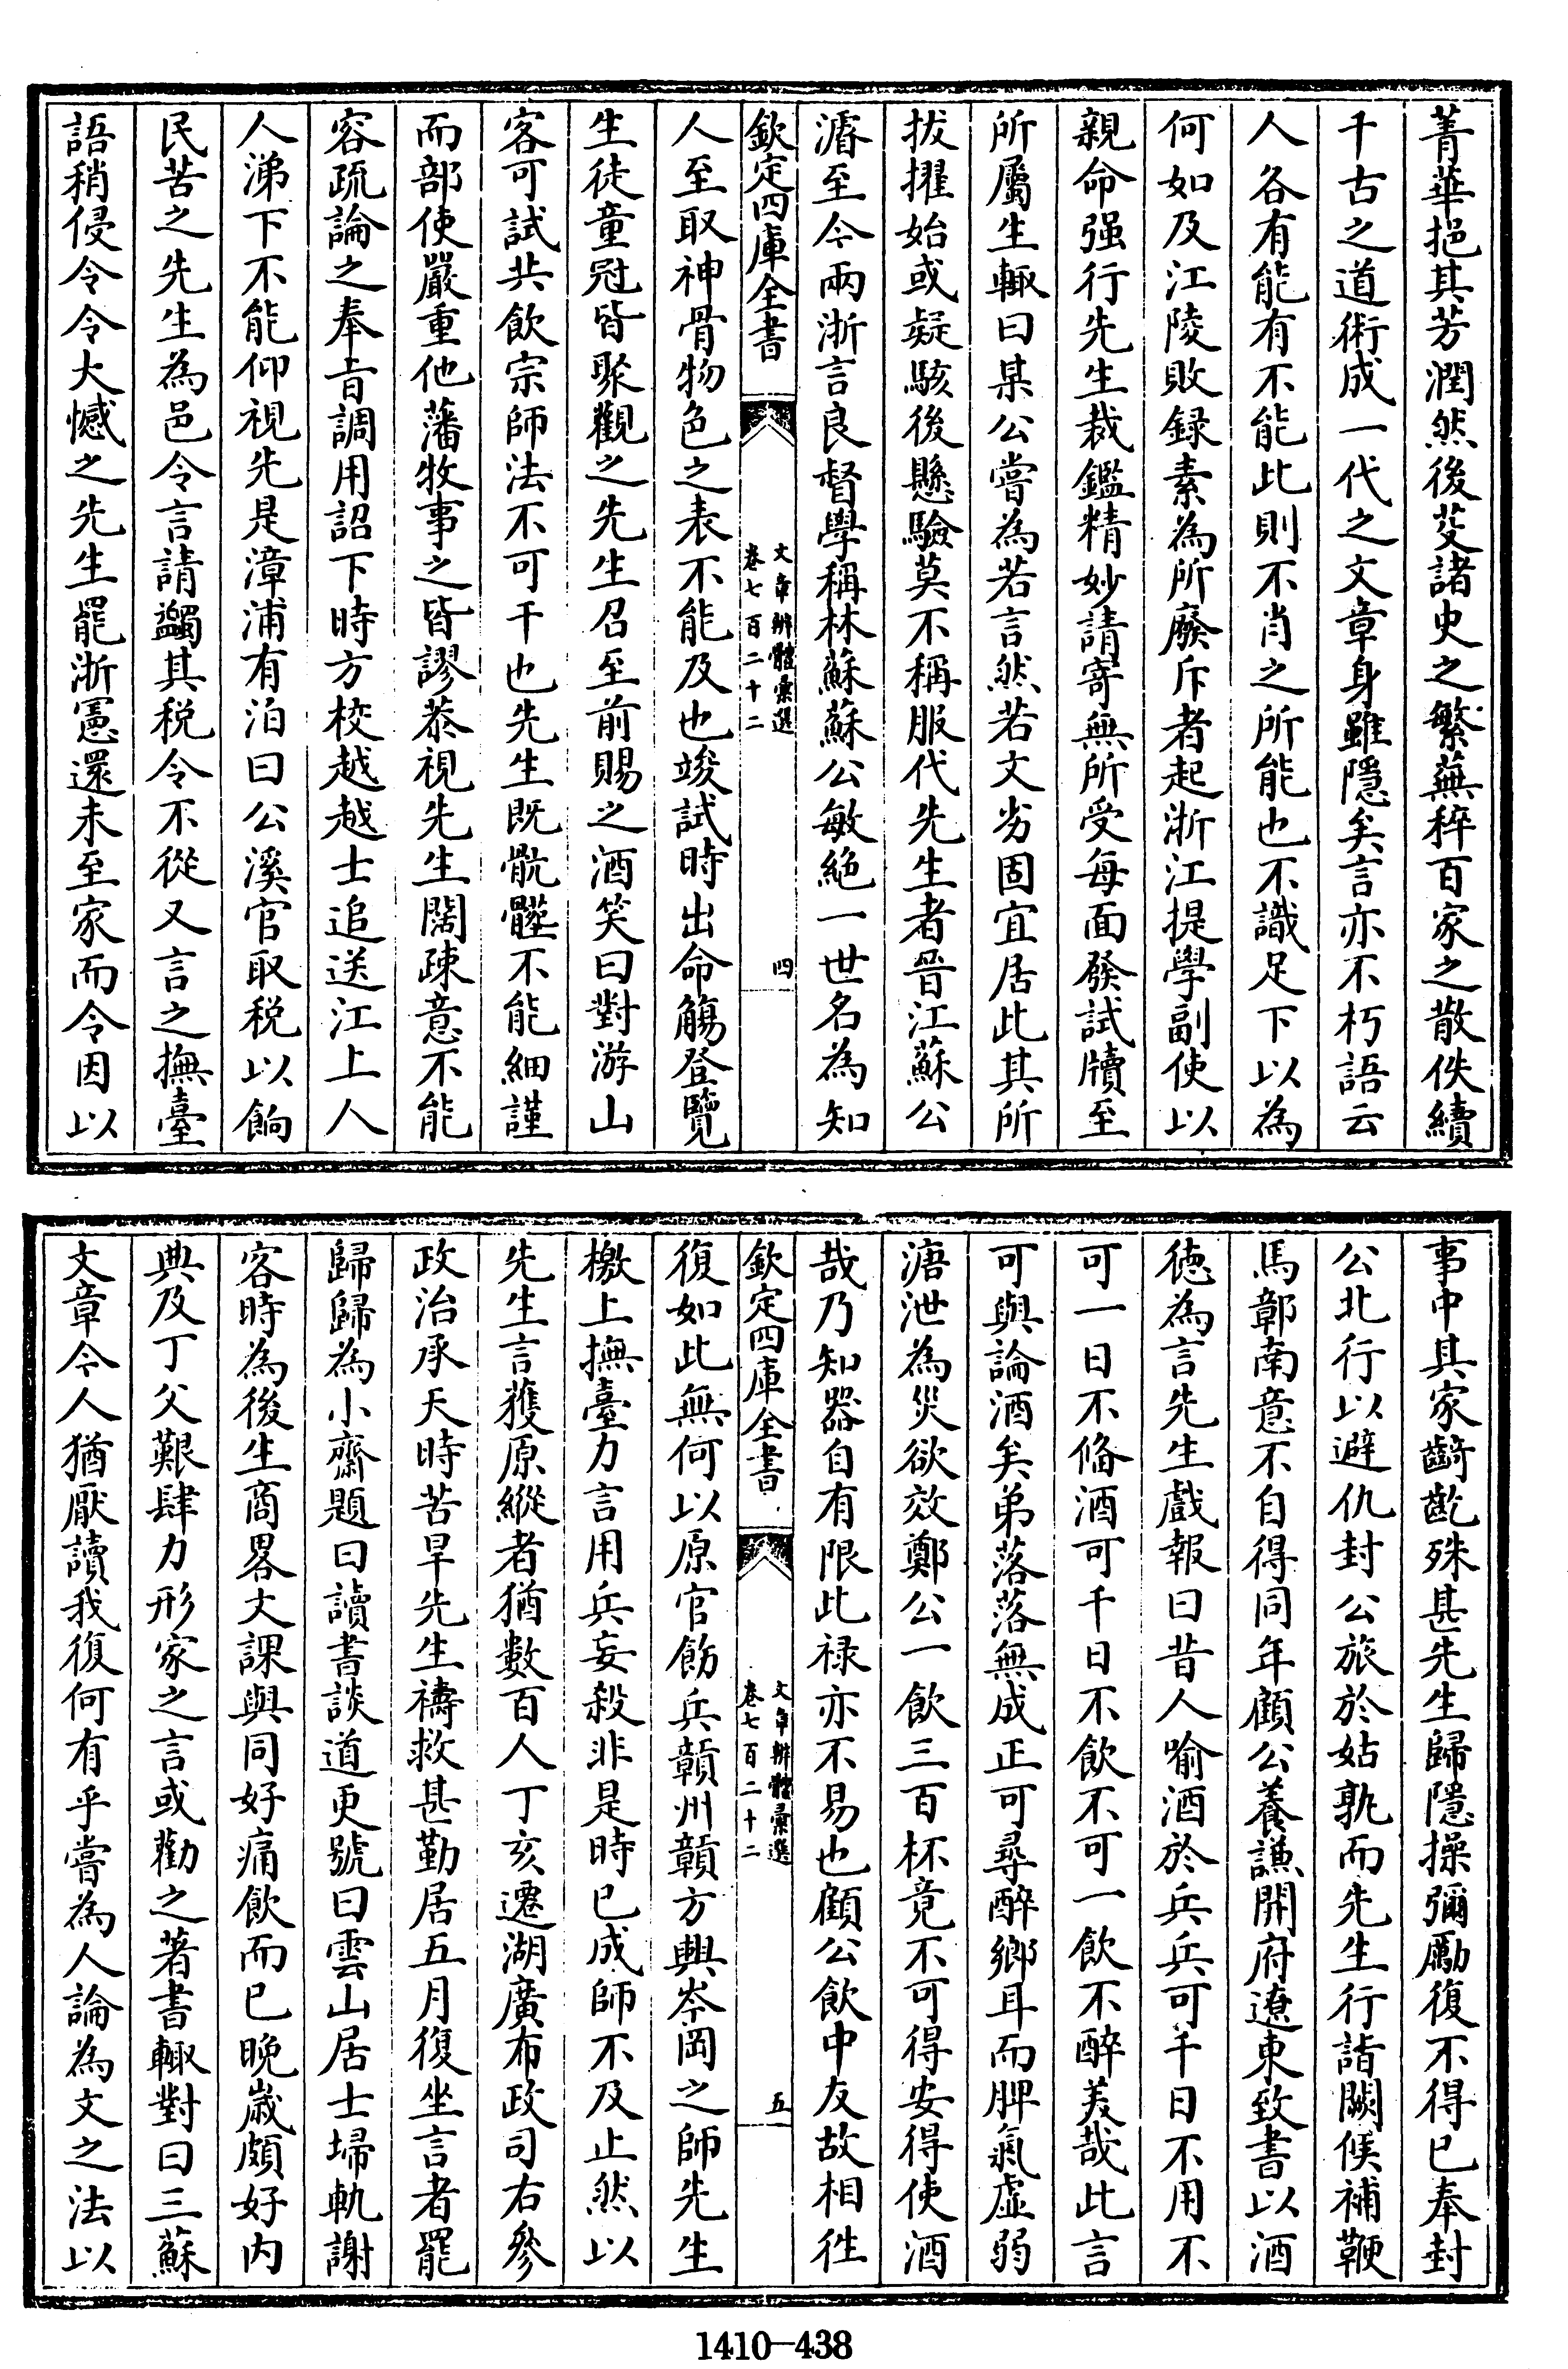 菁華挹其芳潤然後芟諸史之繁蕪稡百家之散佚續
千古之道術成一代之文章身雖隱矣言亦不朽語云
人各有能有不能此則不肖之所能也不識足下以為
何如及江陵敗録素為所廢斥者起浙江提學副使以
親命强行先生裁鑑精妙請寄無所受每面發試牘至
所屬生輙曰某公嘗為若言然若文劣固宜居此其所
拔擢始或疑駭後懸驗莫不稱服代先生者晉江蘇公
濬至今兩浙言良督學稱林蘇蘇公敏絶一世名為知
欽定四庫全書
文章辨體彚選
卷七百二十二
四
人至取神骨物色之表不能及也竣試時出命觴登覽
生徒童冠皆聚觀之先生召至前賜之酒笑曰對游山
客可試共飲宗師法不可干也先生既骯髒不能細謹
而部使嚴重他藩牧事之皆謬恭視先生闊疎意不能
容疏論之奉旨調用詔下時方校越越士追送江上人
人涕下不能仰視先是漳浦有泊曰公溪官取税以餉
民苦之先生為邑令言請蠲其税令不從又言之撫臺
語稍侵令令大憾之先生罷浙憲還未至家而令因以
事中其家齮齕殊甚先生歸隱操彌勵復不得已奉封
公北行以避仇封公旅於姑孰而先生行詣闕候補鞭
馬鄣南意不自得同年顧公養謙開府遼東致書以酒
徳為言先生戲報曰昔人喻酒於兵兵可千日不用不
可一日不備酒可千日不飲不可一飲不醉美哉此言
可與論酒矣弟落落無成正可尋醉鄉耳而脾氣虛弱
溏泄為災欲效鄭公一飲三百杯竟不可得安得使酒
哉乃知器自有限此禄亦不易也顧公飲中友故相徃
欽定四庫全書
文章辨體彚選
卷七百二十二
五
復如此無何以原官飭兵贑州贑方興岑岡之師先生
檄上撫臺力言用兵妄殺非是時已成師不及止然以
先生言獲原縱者猶數百人丁亥遷湖廣布政司右參
政治承天時苦旱先生禱救甚勤居五月復坐言者罷
歸歸為小齋題曰讀書談道更號曰雲山居士埽軌謝
客時為後生商畧文課與同好痛飲而已晚嵗頗好内
典及丁父艱肆力形家之言或勸之著書輙對曰三蘇
文章今人猶厭讀我復何有乎嘗為人論為文之法以
1410—438